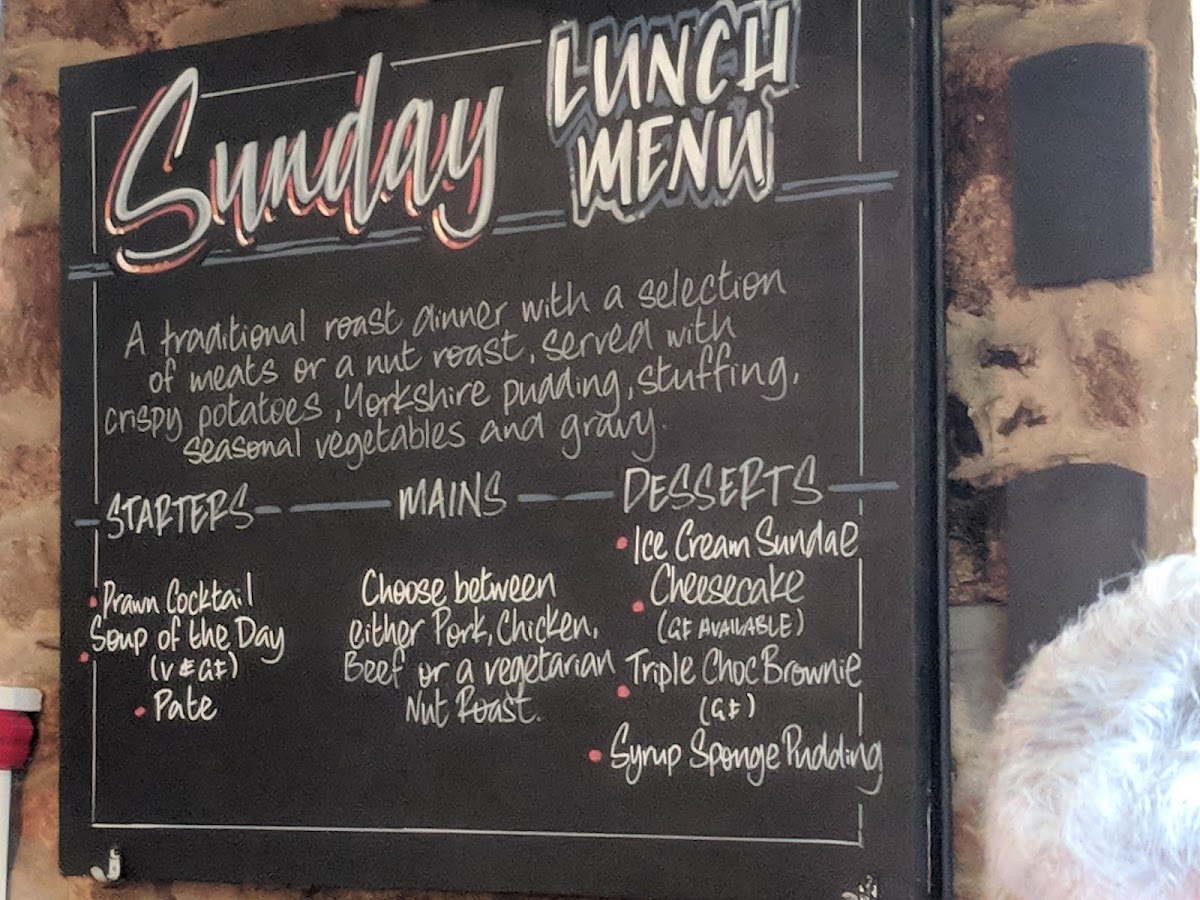 Sunday LUNCH
MENU
A traditional roast dinner with a selection
of meats or a nut roast, served with
crispy potatoes, Yorkshire pudding, stuffing,
seasonal vegetables and gravy.
STARTERS
• Prawn Cocktail
• Soup of the Day
(V & GF)
• Pate
MAINS
Choose between
either Pork, Chicken,
Beef or a vegetarian
Nut Roast.
DESSERTS
• Ice Cream Sundae
• Cheesecake
(GF AVAILABLE)
• Triple Choc Brownie
(GF)
• Syrup Sponge Pudding